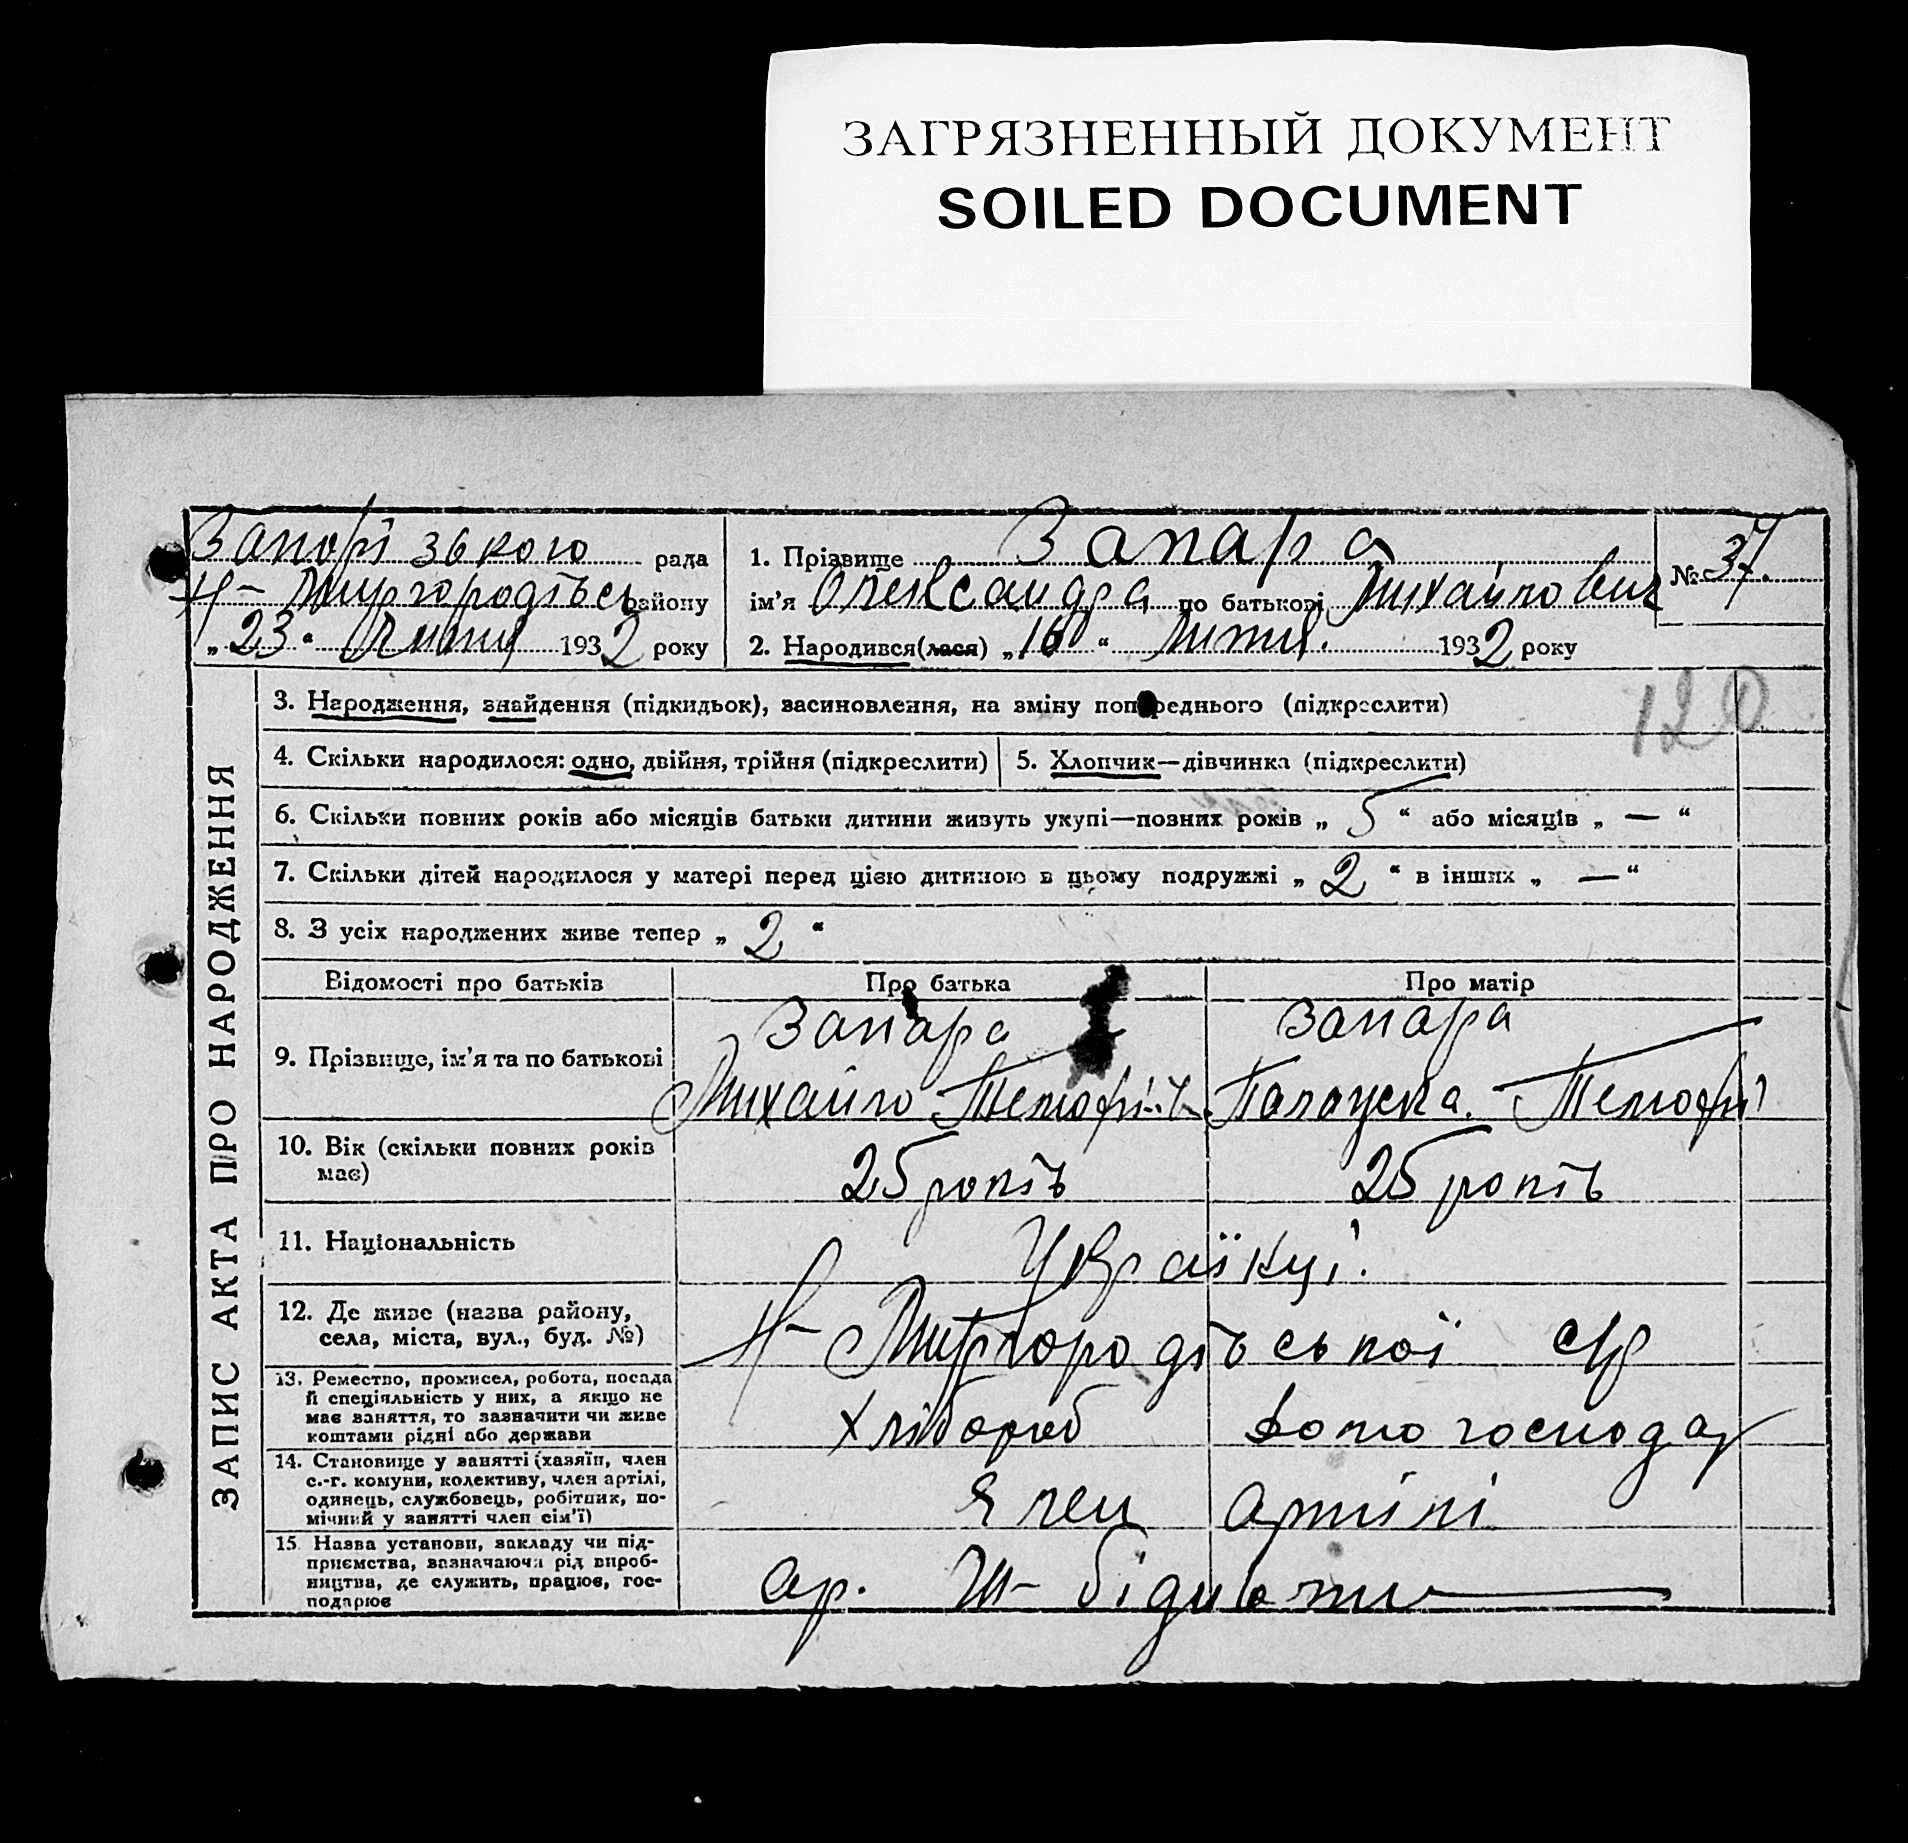 ЗАГРЯЗНЕННЫЙ ДОКУМЕНТ
SOILED DOCUMENT
Запорізького рада
Н-Миргородівсь району
„23“ Лютий 1932 року
1. Прізвище Запара
ім'я Олександра по батькові Михайлович
2. Народився(лася) „16“ Лютий. 1932 року
№ 37.
120
ЗАПИС АКТА ПРО НАРОДЖЕННЯ
3. Народження, знайдення (підкидьок), засиновлення, на зміну попереднього (підкреслити)
4. Скільки народилося: одно, двійня, трійня (підкреслити)
5. Хлопчик—дівчинка (підкреслити)
6. Скільки повних років або місяців батьки дитини живуть укупі—повних років „5“ або місяців „—“
7. Скільки дітей народилося у матері перед цією дитиною в цьому подружжі „2“ в інших „—“
8. З усіх народжених живе тепер „2“
Відомості про батьків Про батька Про матір
9. Прізвище, ім'я та по батькові
Запара
Михайло
Запара
10. Вік (скільки повних років
має)
25 років
25 років
11. Національність
Українці.
12. Де живе (назва району,
села, міста, вул., буд. №)
Н-Миргородівської с/р
13. Ремество, промисел, робота, посада
й спеціяльність у них, а якщо не
має заняття, то зазначити чи живе
коштами рідні або держави
Хлібороб
домогоспода
14. Становище у занятті (хазяїн, член
с.-г. комуни, колективу, член артілі,
одинець, службовець, робітник, по-
мічний у занятті член сім'ї)
Член артілі
15. Назва установи, закладу чи під-
приємства, зазначаючи рід вироб-
ництва, де служить, працює, гос-
подарює
ар. бідноти